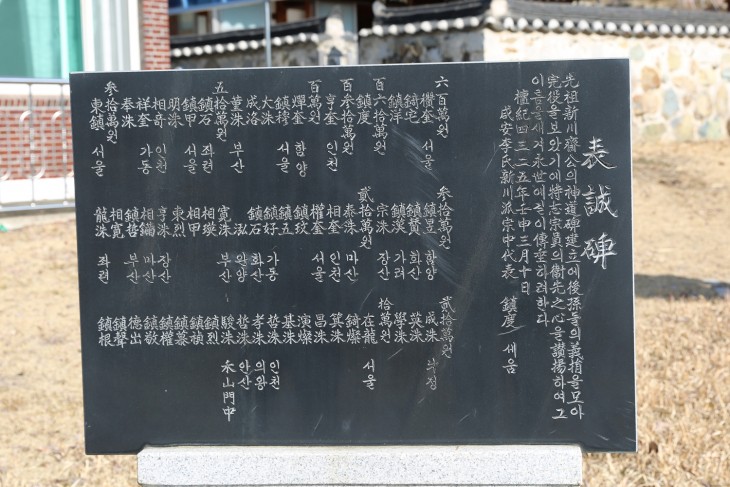 表誠碑
先祖新川齋公의神道碑建立에後孫들의義捐을모아
完役을보았기에特志宗員의衛先之心을讚揚하여그
이름을새겨永世에길이傳하려한다
檀紀四三二五年壬申三月十日
咸安李氏新川派宗中代表 鎭度 세움
六百萬원
欑奎 서울
錡宅
鎭洋
百六拾萬원
鎭度
百參拾萬원
亨奎 인천
百萬원
燀奎 함양
鎭樟 서울
大洙
成洛
董洙 부산
五拾萬원
鎭石 좌련
鎭甲 서울
明洙
相奇 인천
祥奎 가동
泰洙
參拾萬원
東鎭 서울
參拾萬원
鎭昱 함양
鎭黃 가려
鎭漢
宗洙 장산
貳拾萬원
泰洙 마산
相奎 인천
權奎 서울
鎭玟
鎭五
鎭好 가동
鎭石 화산
泓
寬洙 부산
相瑛
相甲
東烈
亨洙 장산
相鏞 마산
鎭哲 부산
相寬
龍洙 좌련
貳拾萬원
成洙
英洙
學洙
拾萬원
在龍 서울
錡燦
箕洙
昌洙
演燦
基洙
哲洙 인천
孝洙 의왕
哲洙 안산
駿洙 禾山門中
鎭烈
鎭禎
鎭慕
鎭權
鎭敬
德出
鎭聲
鎭根